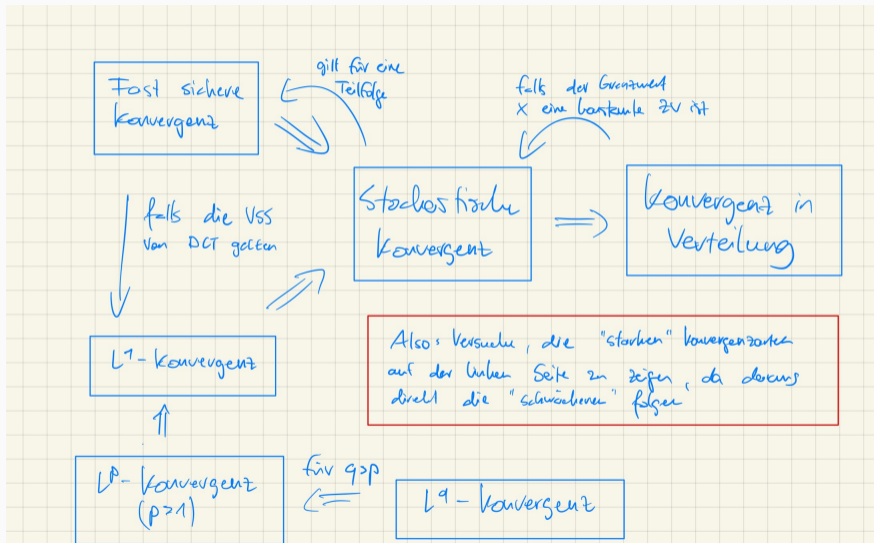 Fast sichere
Konvergenz
gilt für eine
Teilfolge
falls der Grenzwert
X eine konstante ZV ist
Stochastische
Konvergenz
Konvergenz in
Verteilung
falls die VSS
von DCT gelten
L¹-Konvergenz
Also: Versuche, die "starken" Konvergenzarten
auf der linken Seite zu zeigen, da daraus
direkt die "schwächeren" folgen.
L^p-Konvergenz
(p>1)
für q>p
L^q-Konvergenz